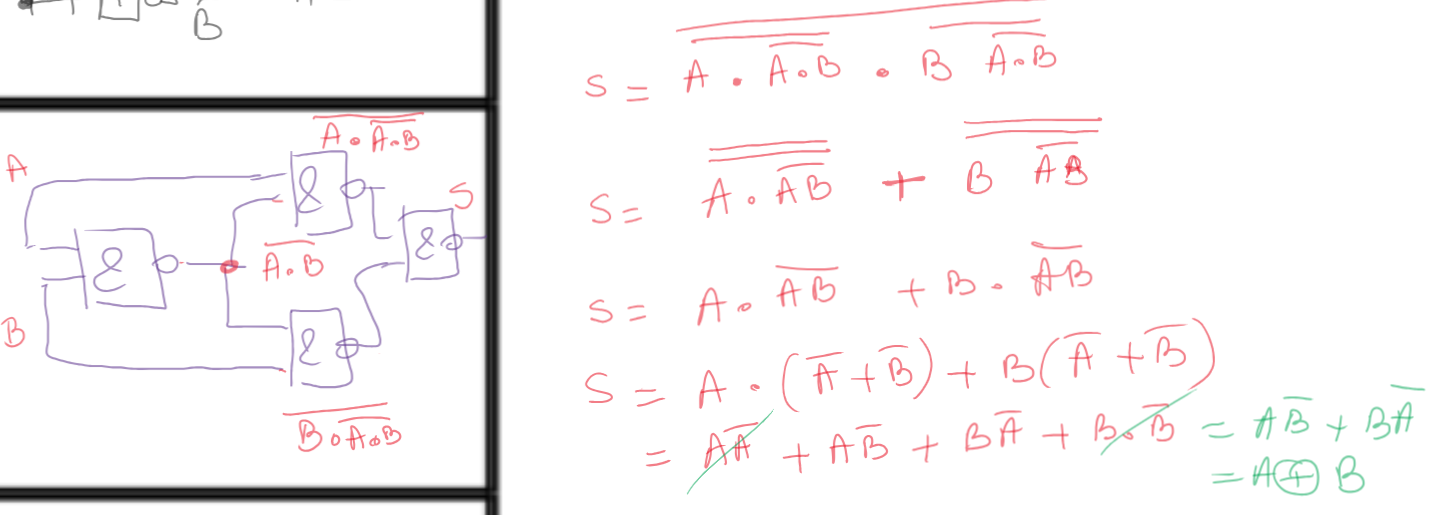 B
A . A̅.̅B̅
A
&
S
&
&
A̅.̅B̅
B
&
B . A̅.̅B̅
S = A . A̅.̅B̅ . B A̅.̅B̅
S = A . A̅B̅ + B A̅B̅
S = A . A̅B̅ + B . A̅B̅
S = A . (A̅ + B̅) + B(A̅ + B̅)
= AA̅ + AB̅ + BA̅ + B.B̅ = AB̅ + BA̅
= A ⊕ B